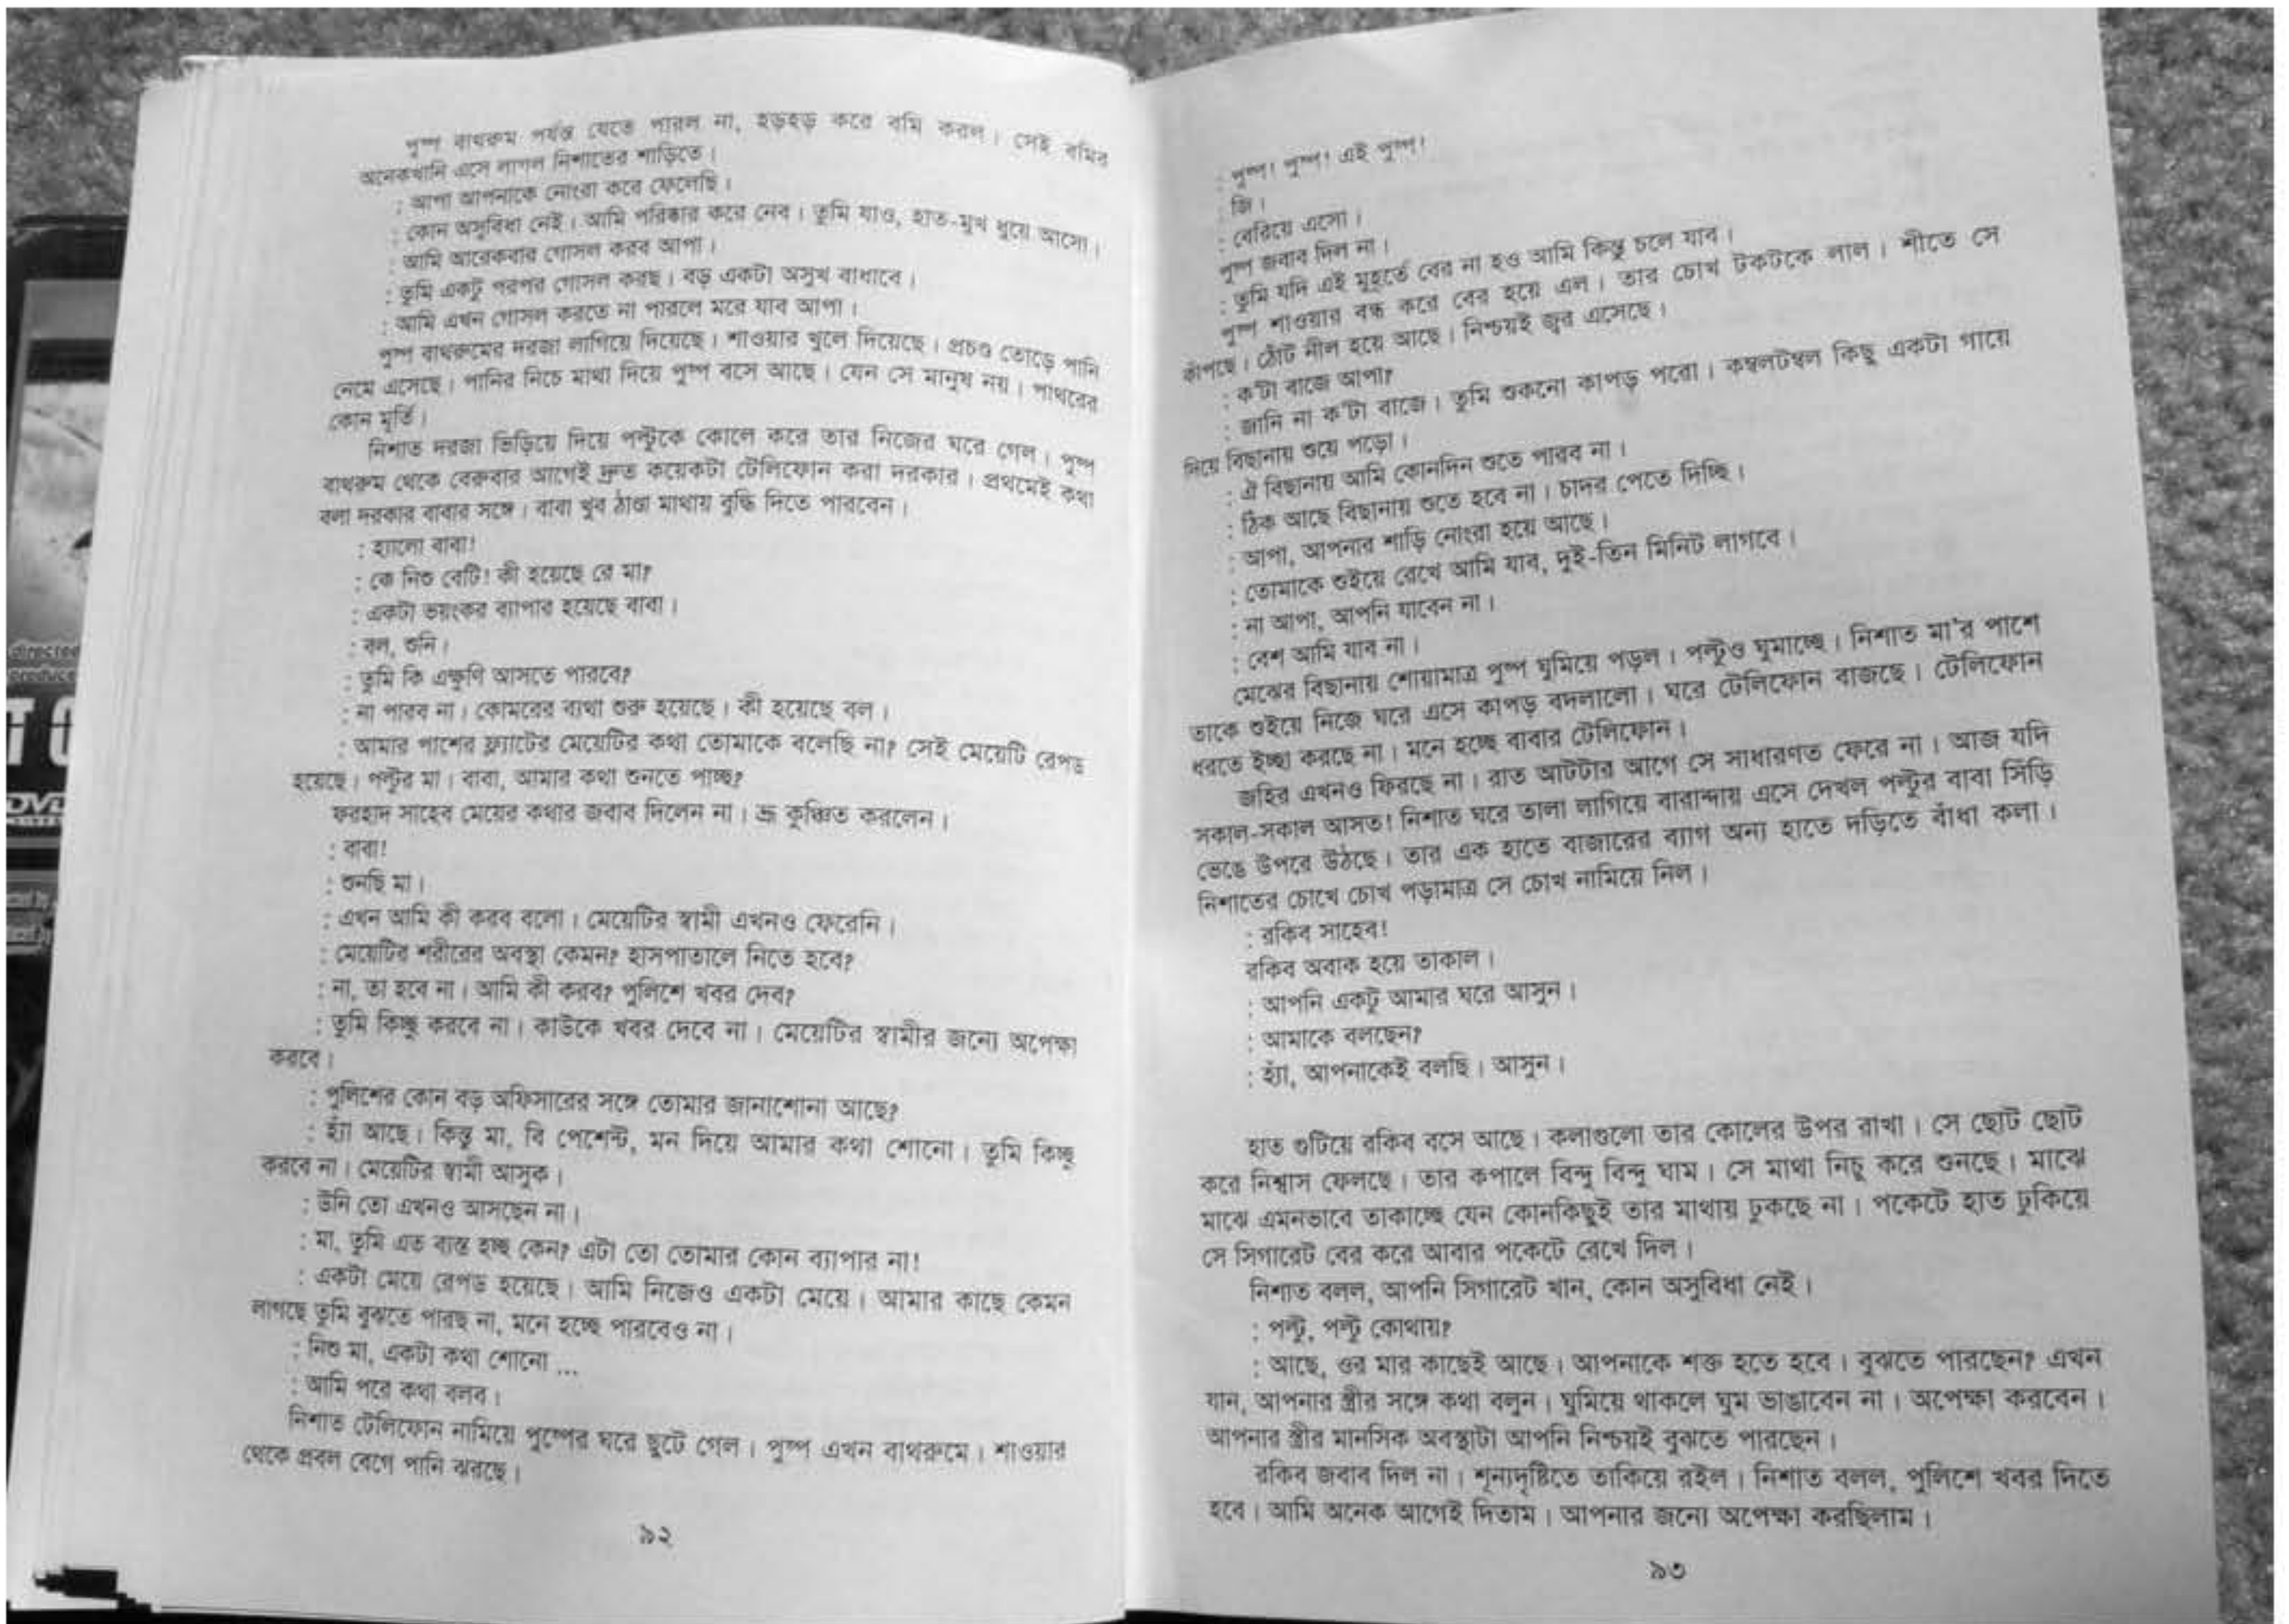 পুষ্প বাথরুম পর্যন্ত যেতে পারল না, হড়হড় করে বমি করল। সেই বমির
অনেকখানি এসে লাগল নিশাতের শাড়িতে।
: আপা আপনাকে নোংরা করে ফেলেছি।
: কোন অসুবিধা নেই। আমি পরিষ্কার করে নেব। তুমি যাও, হাত-মুখ ধুয়ে আসো।
: আমি আরেকবার গোসল করব আপা।
: তুমি একটু পরপর গোসল করছ। বড় একটা অসুখ বাধাবে।
: আমি এখন গোসল করতে না পারলে মরে যাব আপা।
পুষ্প বাথরুমের দরজা লাগিয়ে দিয়েছে। শাওয়ার খুলে দিয়েছে। প্রচণ্ড তোড়ে পানি
নেমে এসেছে। পানির নিচে মাথা দিয়ে পুষ্প বসে আছে। যেন সে মানুষ নয়। পাথরের
কোন মূর্তি।
নিশাত দরজা ভিড়িয়ে দিয়ে পল্টুকে কোলে করে তার নিজের ঘরে গেল। পুষ্প
বাথরুম থেকে বেরুবার আগেই দ্রুত কয়েকটা টেলিফোন করা দরকার। প্রথমেই কথা
বলা দরকার বাবার সঙ্গে। বাবা খুব ঠাণ্ডা মাথায় বুদ্ধি দিতে পারবেন।
: হ্যালো বাবা!
: কে নিশু বেটি! কী হয়েছে রে মা?
: একটা ভয়ংকর ব্যাপার হয়েছে বাবা।
: বল, শুনি।
: তুমি কি এক্ষুণি আসতে পারবে?
: না পারব না। কোমরের ব্যথা শুরু হয়েছে। কী হয়েছে বল।
: আমার পাশের ফ্ল্যাটের মেয়েটির কথা তোমাকে বলেছি না? সেই মেয়েটি রেপড
হয়েছে। পল্টুর মা। বাবা, আমার কথা শুনতে পাচ্ছ?
ফরহাদ সাহেব মেয়ের কথার জবাব দিলেন না। ভ্রূ কুঞ্চিত করলেন।
: বাবা!
: শুনছি মা।
: এখন আমি কী করব বলো। মেয়েটির স্বামী এখনও ফেরেনি।
: মেয়েটির শরীরের অবস্থা কেমন? হাসপাতালে নিতে হবে?
: না, তা হবে না। আমি কী করব? পুলিশে খবর দেব?
: তুমি কিচ্ছু করবে না। কাউকে খবর দেবে না। মেয়েটির স্বামীর জন্যে অপেক্ষা
করবে।
: পুলিশের কোন বড় অফিসারের সঙ্গে তোমার জানাশোনা আছে?
: হ্যাঁ আছে। কিন্তু মা, বি পেশেন্ট, মন দিয়ে আমার কথা শোনো। তুমি কিচ্ছু
করবে না। মেয়েটির স্বামী আসুক।
: উনি তো এখনও আসছেন না।
: মা, তুমি এত ব্যস্ত হচ্ছ কেন? এটা তো তোমার কোন ব্যাপার না!
: একটা মেয়ে রেপড হয়েছে। আমি নিজেও একটা মেয়ে। আমার কাছে কেমন
লাগছে তুমি বুঝতে পারছ না, মনে হচ্ছে পারবেও না।
: নিশু মা, একটা কথা শোনো ...
: আমি পরে কথা বলব।
নিশাত টেলিফোন নামিয়ে পুষ্পের ঘরে ছুটে গেল। পুষ্প এখন বাথরুমে। শাওয়ার
থেকে প্রবল বেগে পানি ঝরছে।
৯২
: পুষ্প! পুষ্প! এই পুষ্প!
: জি।
: বেরিয়ে এসো।
পুষ্প জবাব দিল না।
: তুমি যদি এই মুহূর্তে বের না হও আমি কিন্তু চলে যাব।
পুষ্প শাওয়ার বন্ধ করে বের হয়ে এল। তার চোখ টকটকে লাল। শীতে সে
কাঁপছে। ঠোঁট নীল হয়ে আছে। নিশ্চয়ই জ্বর এসেছে।
: ক'টা বাজে আপা?
: জানি না ক'টা বাজে। তুমি শুকনো কাপড় পরো। কম্বলটম্বল কিছু একটা গায়ে
দিয়ে বিছানায় শুয়ে পড়ো।
: ঐ বিছানায় আমি কোনদিন শুতে পারব না।
: ঠিক আছে বিছানায় শুতে হবে না। চাদর পেতে দিচ্ছি।
: আপা, আপনার শাড়ি নোংরা হয়ে আছে।
: তোমাকে শুইয়ে রেখে আমি যাব, দুই-তিন মিনিট লাগবে।
: না আপা, আপনি যাবেন না।
: বেশ আমি যাব না।
মেঝের বিছানায় শোয়ামাত্র পুষ্প ঘুমিয়ে পড়ল। পল্টুও ঘুমাচ্ছে। নিশাত মা'র পাশে
তাকে শুইয়ে নিজে ঘরে এসে কাপড় বদলালো। ঘরে টেলিফোন বাজছে। টেলিফোন
ধরতে ইচ্ছা করছে না। মনে হচ্ছে বাবার টেলিফোন।
জহির এখনও ফিরছে না। রাত আটটার আগে সে সাধারণত ফেরে না। আজ যদি
সকাল-সকাল আসত! নিশাত ঘরে তালা লাগিয়ে বারান্দায় এসে দেখল পল্টুর বাবা সিঁড়ি
ভেঙে উপরে উঠছে। তার এক হাতে বাজারের ব্যাগ অন্য হাতে দড়িতে বাঁধা কলা।
নিশাতের চোখে চোখ পড়ামাত্র সে চোখ নামিয়ে নিল।
: রকিব সাহেব!
রকিব অবাক হয়ে তাকাল।
: আপনি একটু আমার ঘরে আসুন।
: আমাকে বলছেন?
: হ্যাঁ, আপনাকেই বলছি। আসুন।
হাত গুটিয়ে রকিব বসে আছে। কলাগুলো তার কোলের উপর রাখা। সে ছোট ছোট
করে নিশ্বাস ফেলছে। তার কপালে বিন্দু বিন্দু ঘাম। সে মাথা নিচু করে শুনছে। মাঝে
মাঝে এমনভাবে তাকাচ্ছে যেন কোনকিছুই তার মাথায় ঢুকছে না। পকেটে হাত ঢুকিয়ে
সে সিগারেট বের করে আবার পকেটে রেখে দিল।
নিশাত বলল, আপনি সিগারেট খান, কোন অসুবিধা নেই।
: পল্টু, পল্টু কোথায়?
: আছে, ওর মার কাছেই আছে। আপনাকে শক্ত হতে হবে। বুঝতে পারছেন? এখন
যান, আপনার স্ত্রীর সঙ্গে কথা বলুন। ঘুমিয়ে থাকলে ঘুম ভাঙাবেন না। অপেক্ষা করবেন।
আপনার স্ত্রীর মানসিক অবস্থাটা আপনি নিশ্চয়ই বুঝতে পারছেন।
রকিব জবাব দিল না। শূন্যদৃষ্টিতে তাকিয়ে রইল। নিশাত বলল, পুলিশে খবর দিতে
হবে। আমি অনেক আগেই দিতাম। আপনার জন্যে অপেক্ষা করছিলাম।
৯৩
directed
produce
DVD